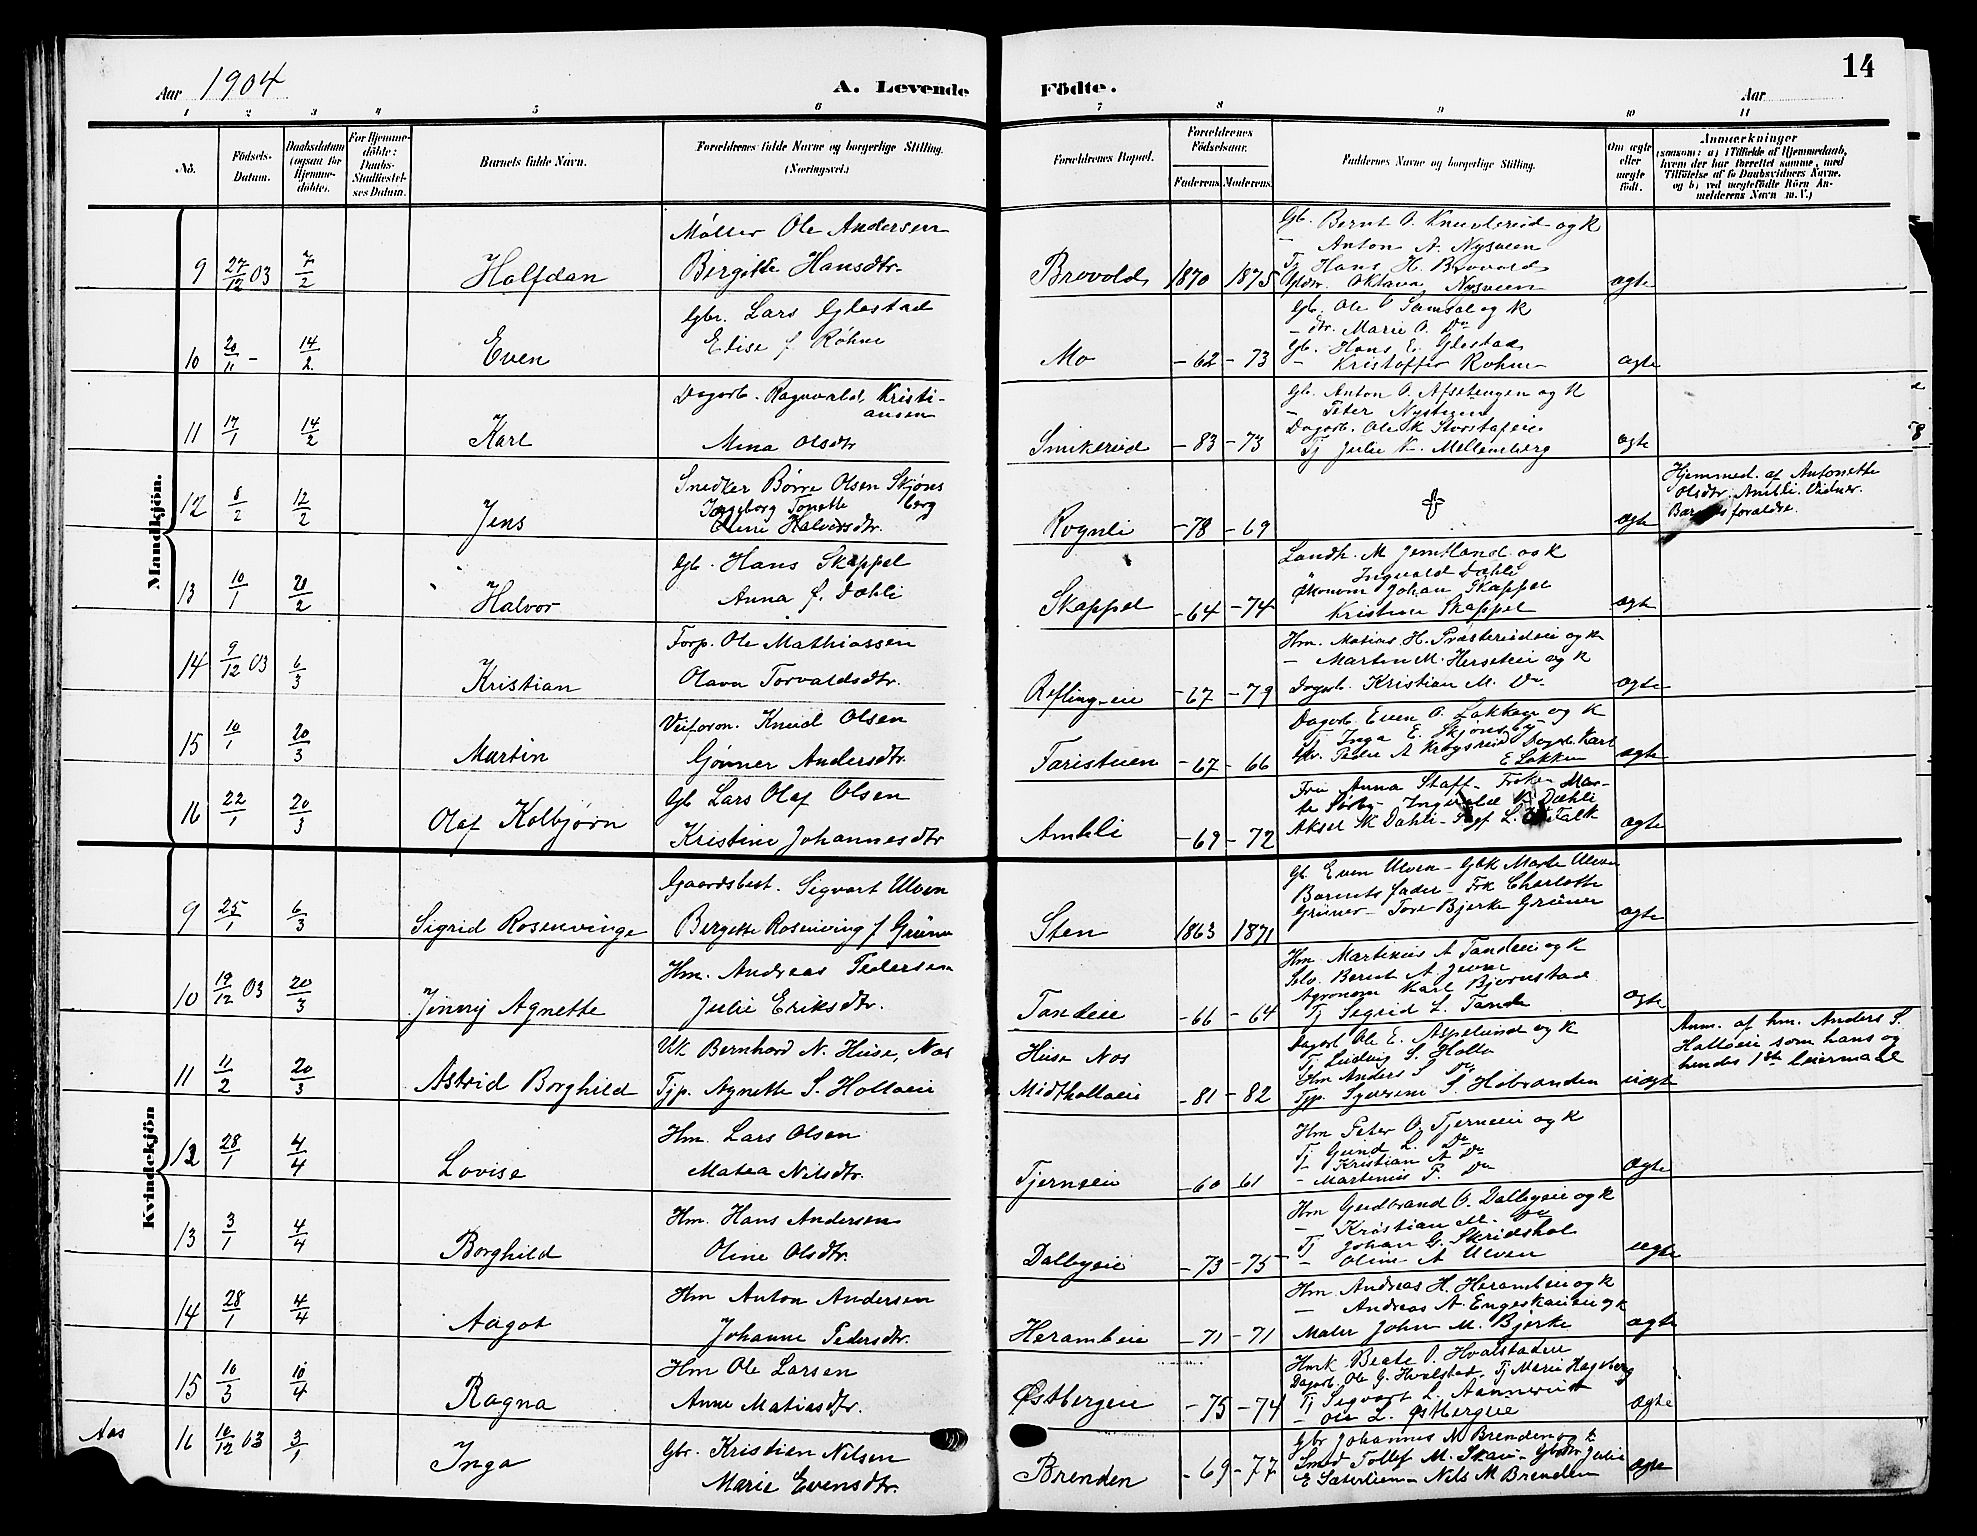 14
Aar 1904
A. Levende
Födte.
Aar
1 2 3 4 5 6 7 8 9 10 11
No.
Födsels-Datum.
Daabsdatum (ogsaa for Hjemmedöbte).
For Hjemmedöbte: Daabs-Stadfæstelses Datum.
Barnets fulde Navn.
Forældrenes fulde Navne og borgerlige Stilling. (Næringsvei.)
Forældrenes Bopæl.
Forældrenes Födselsaar.
Faderens. Moderens.
Faddernes Navne og borgerlige Stilling.
Om ægte eller uægte födt.
Anmærkninger
(saasom: a) i Tilfælde af Hjemmedaab, hvem der har forrettet samme, med Tilföielse af to Daabsvidners Navne. og b) ved uægtefödte Börn Anmelderens Navn m. V.)
Mandkjön.
9 27/12 03 7/2 Halfdan
Møller Ole Andersen
Birgitte Hansdtr.
Brovold 1870 1875
Gb. Bernt O. Knuvlereid og K
– Anton A. Nysveen
Tj Hans H. Brovold
Oktava Nysveen
ægte
10 20/11 – 14/2 Even
Gbr. Lars Glæstad
Edise f. Røhne
Mo – 62 – 73
Gb. Ole O Samsal og K
– dtr. Marie O. Do
Gb. Hans E. Glestad
– Kristoffer Rohne
ægte
11 17/1 14/2 Karl
Dagarb. Ragnvald Kristiansen
Mina Olsdtr
Smikereid – 83 – 73
Gb. Anton O. Afsetengen og K
– Peter Nystuen
Dagarb. Ole K Storstafeie
Tj Julie N. Mellemberg
ægte
12 8/2 12/2 Jens
Snedker Børre Olsen Skjønsberg
Ingeborg Tonette
Oline Halvorsdtr.
Rognli – 78 – 69
ægte
Hjemmed. af Antonette
Olsdtr. Amlii. Vidner.
Barnets forældre.
13 10/1 20/2 Halvor
Gb. Hans Skappel
Anna f. Dæhli
Skappel – 64 – 74
Landh. M Jemtland og K
Ingvald Dæhli
Økonom Johan Skappel
Kristian Skappel
ægte
14 9/12 03 6/3 Kristian
Forp. Ole Mathiassen
Olava Torvaldsdtr.
Reflingeie – 67 – 79
Hm. Matias H. Prästereideie og K
– Martin M. Herseteie og K
Dagarb. Kristian M. Do
ægte
15 10/1 20/3 Martin
Veiforvn. Knud Olsen
Gønner Andersdtr.
Taristuen – 67 – 66
Dagarb. Even O. Løkken og K
Tj Inga E. Skjønsby
Peder A Krogsreid Dagarb. Karl
E Løkken
ægte
16 22/1 20/3 Olaf Kolbjørn
Gb Lars Olaf Olsen
Kristine Johannesdtr
Amlili – 69 – 72
Fru Anna Staff – Frøken Marte
Sørby – Ingvald Dæhli
Aksel Sk Dæhli – L. Falk
ægte
Kvindekjön
9 25/1 6/3 Sigrid Rosenvinge
Gaardsbest. Sigvart Ulven
Bergette Rosenving f Grüner
Sten 1863 1871
Gb Even Ulven – Gbk Marte Ulven
Barnets fader – Frk Charlotte
Grüner – Tore Bjerke Grüner
ægte
10 19/12 03 20/3 Jenny Agnette
Hm. Andreas Pedersen
Julie Eriksdtr.
Tandeie – 66 – 64
Hm. Martinius A Tandeie og K
Selv. Bernt A Juvne
Agronom Karl Bjørnstad
Tj Sigrid L. Tande
ægte
11 11/2 20/3 Astrid Borghild
Uk Bernhard N. Huse, Nos
Tjp. Agnette S. Holloeie
Huse Nos
Midthalloeie – 81 – 82
Dagarb Ole E. Aspelund og K
Tj Ludvig S. Hollo
Hm Anders S Do
Tjp. Syverine S. Høbranden
uægte
Anm. af hm. Anders S.
Holloeie som hans og
hendes 1ste leiermaal
12 28/1 4/4 Lovise
Hm. Lars Olsen
Matea Nilsdtr.
Tjernseie – 60 – 61
Hm Peter O. Tjerneie og K
Tj Gund L. Do
– Kristian A Do
– Martinius P. Do
ægte
13 3/1 4/4 Borghild
Hm. Hans Andersen
Oline Olsdtr.
Dalbyeie – 73 – 75
Hm Gudbrand O. Dalbyeie og K
– Kristian M. Do
Tj Johan G. Skridshol
– Oline A Ulven
uegte
14 28/1 4/4 Aagot
Hm Anton Andersen
Johanne Pedersdtr.
Herambeie – 71 – 71
Hm. Andreas H. Herambeie og K
– Andreas A. Engeskaueie og K
Maler John M. Bjerke
ægte
15 10/3 10/4 Ragna
Hm Ole Larsen
Anne Matiasdtr.
Østbergeie – 75 – 74
Hmk Beate O. Hvalstadeie
Dagarb. Ole G. Hvalstad. Tj Marie Hageberg
Tj Sigvart L. Aannerud
– Ole L. Østbergeie
ægte
Aas
16 10/12 03 3/1 Inga
Gbr. Kristian Nilsen
Marie Evensdtr.
Brenden – 69 – 77
Gbr Johannes M Brenden og K
Smed Tollef M. Skaui – Gbdtr Julie
E Sæterlien – Nils M Brenden
ægte